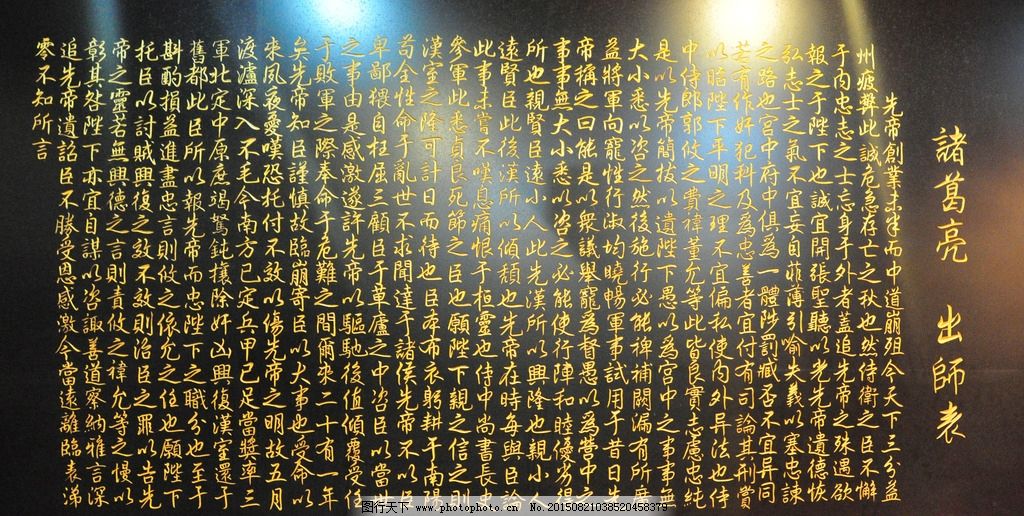 諸葛亮 出師表
先帝創業未半而中道崩殂今天下三分益
州疲弊此誠危急存亡之秋也然侍衛之臣不懈
于內忠志之士忘身于外者蓋追先帝之殊遇欲
報之于陛下也誠宜開張聖聽以光先帝遺德恢
弘志士之氣不宜妄自菲薄引喻失義以塞忠諫
之路也宮中府中俱為一體陟罰臧否不宜异同
若有作奸犯科及為忠善者宜付有司論其刑賞
以昭陛下平明之理不宜偏私使內外异法也侍
中侍郎郭攸之費禕董允等此皆良實志慮忠純
是以先帝簡拔以遺陛下愚以為宮中之事事無
大小悉以咨之然後施行必能裨補闕漏有所廣
益將軍向寵性行淑均曉暢軍事試用于昔日先
帝稱之曰能是以衆議舉寵為督愚以為營中之
事事無大小悉以咨之必能使行陣和睦優劣得
所也親賢臣遠小人此先漢所以興隆也親小人
遠賢臣此後漢所以傾頹也先帝在時每與臣論
此事未嘗不嘆息痛恨于桓靈也侍中尚書長史
參軍此悉貞良死節之臣也願陛下親之信之則
漢室之隆可計日而待也臣本布衣躬耕于南陽
苟全性命于亂世不求聞達于諸侯先帝不以臣
卑鄙猥自枉屈三顧臣于草廬之中咨臣以當世
之事由是感激遂許先帝以驅馳後值傾覆受任
于敗軍之際奉命于危難之間爾來二十有一年
矣先帝知臣謹慎故臨崩寄臣以大事也受命以
來夙夜憂嘆恐托付不效以傷先帝之明故五月
渡瀘深入不毛今南方已定兵甲已足當獎率三
軍北定中原庶竭駑鈍攘除奸凶興復漢室還于
舊都此臣所以報先帝而忠陛下之職分也至于
斟酌損益進盡忠言則攸之依允之任也願陛下
托臣以討賊興復之效不效則治臣之罪以告先
帝之靈若無興德之言則責攸之禕允等之慢以
彰其咎陛下亦宜自謀以咨諏善道察納雅言深
追先帝遺詔臣不勝受恩感激今當遠離臨表涕
零不知所言
图行天下 www.photophoto.cn No.20150821038520458379